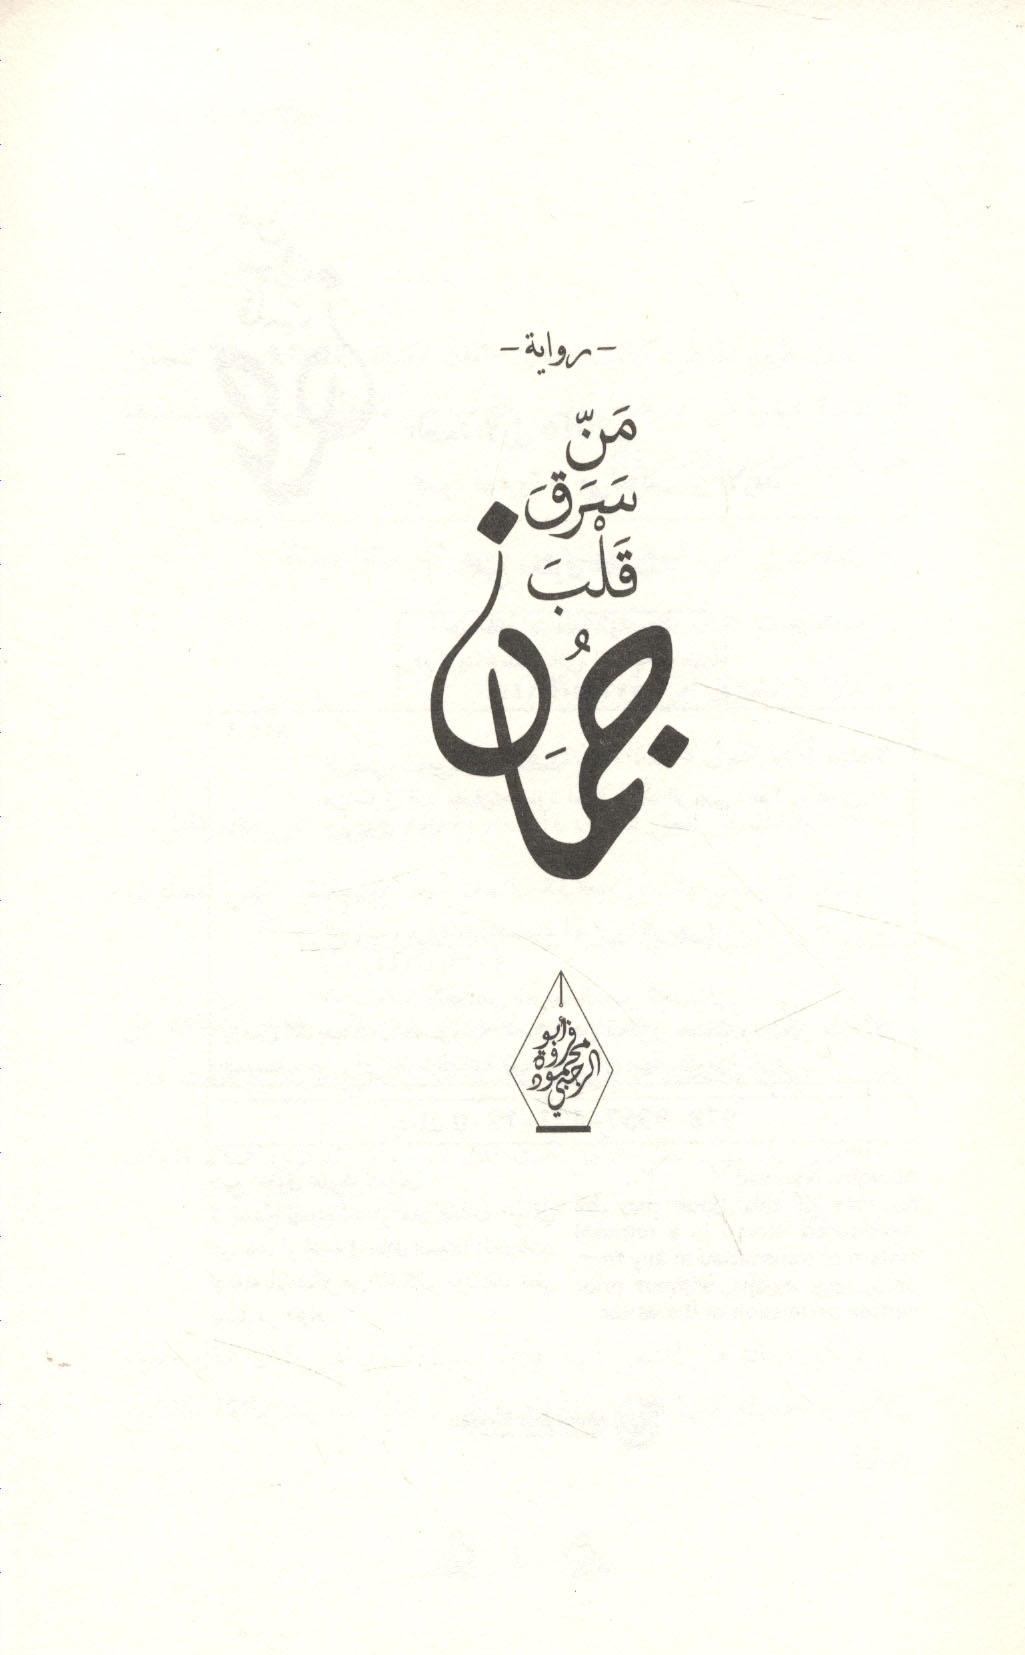 - رواية -
مَنّ
سَرَقَ
قَلْبَ
جُمَان
أبو
فروة
محمود
الرجبي